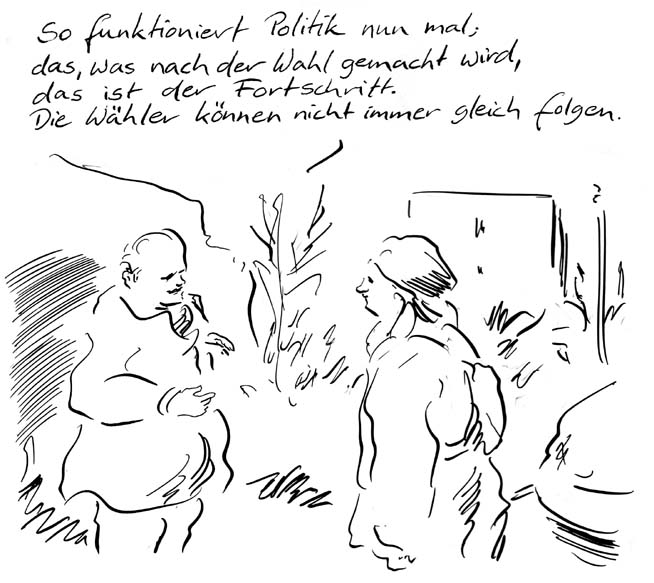 So funktioniert Politik nun mal;
das, was nach der Wahl gemacht wird,
das ist der Fortschritt.
Die Wähler können nicht immer gleich folgen.